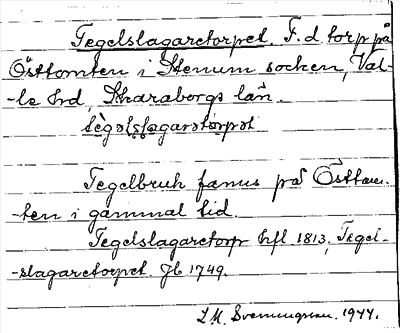 Tegelslagaretorpet. F. d. torp på
Östtomten i Stenum socken, Val-
-le hd, Skaraborgs län.
Tegelbruk fanns på Östtom-
-ten i gammal tid.
Tegelslagaretorp hfl 1813, Tegel-
-slagaretorpet Jb 1749.
L. M. Svenungsson. 1944.